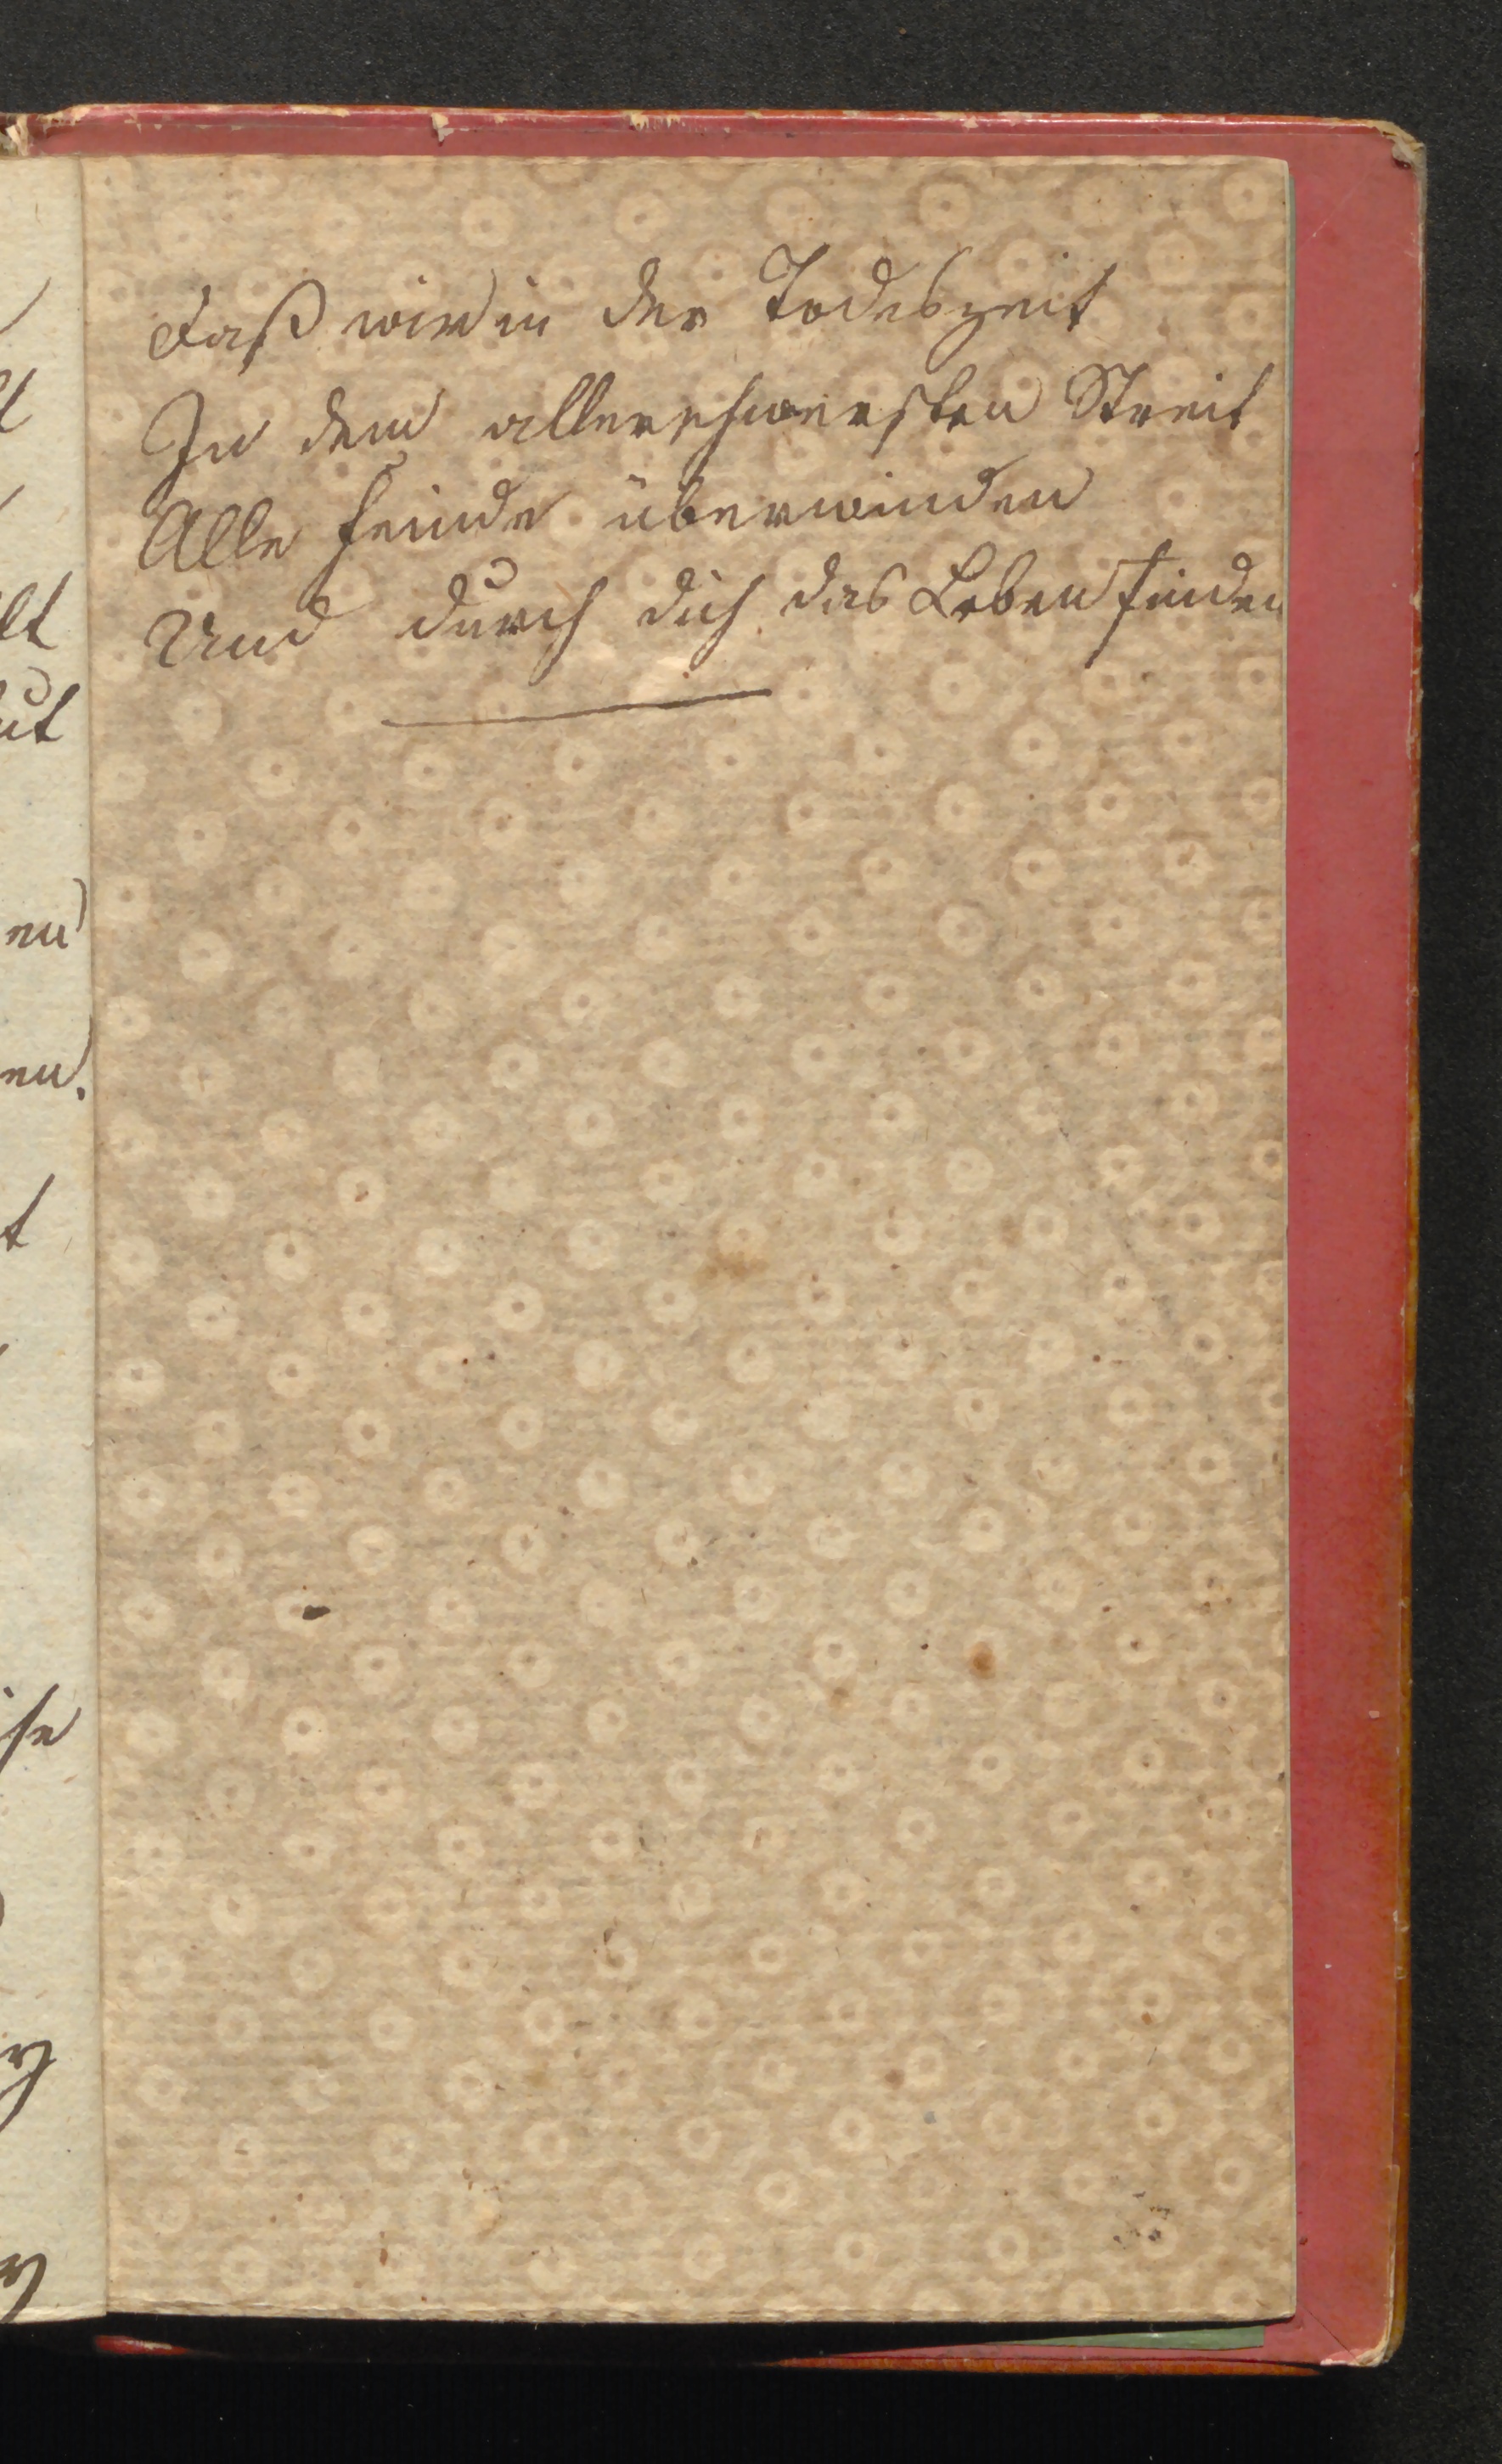 Daß wir in der Todeszeit
In dem allerschwersten Streit
Alle Feinde überwinden
Und durch dich das Leben finden